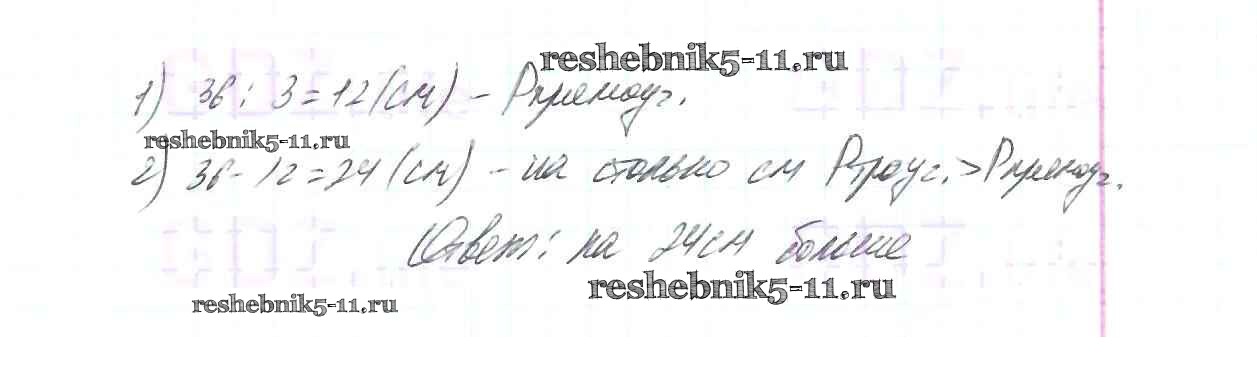 reshebnik5-11.ru
1) 36 : 3 = 12 (см) – Pпрямоуг.
reshebnik5-11.ru
2) 36 - 12 = 24 (см) – на столько см Pтреуг. > Pпрямоуг.
Ответ: на 24см больше
reshebnik5-11.ru
reshebnik5-11.ru